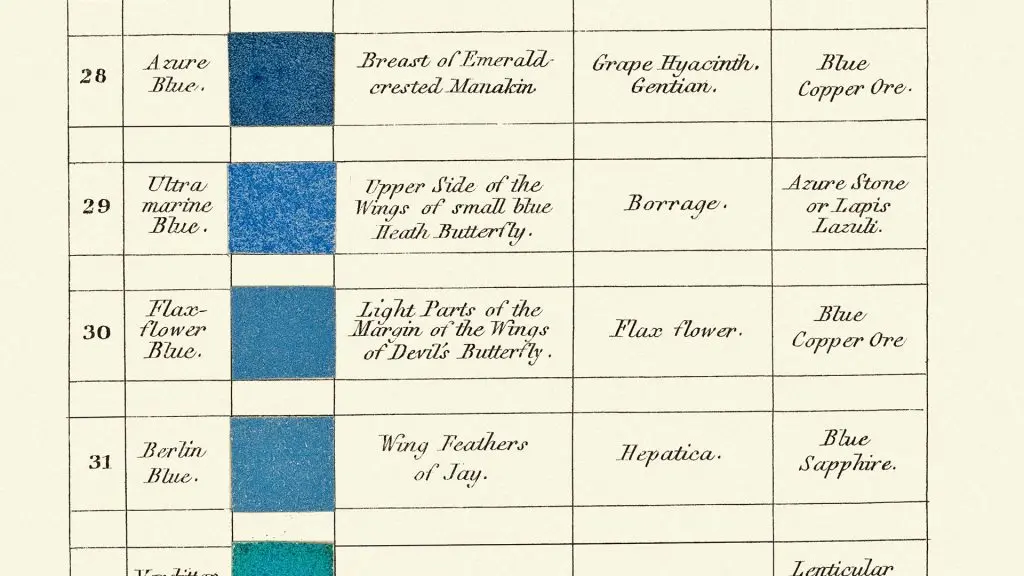 28
Azure
Blue.
Breast of Emerald-
crested Manakin.
Grape Hyacinth.
Gentian.
Blue
Copper Ore.
29
Ultra
marine
Blue.
Upper Side of the
Wings of small blue
Heath Butterfly.
Borrage.
Azure Stone
or Lapis
Lazuli.
30
Flax-
flower
Blue.
Light Parts of the
Margin of the Wings
of Devil's Butterfly.
Flax flower.
Blue
Copper Ore
31
Berlin
Blue.
Wing Feathers
of Jay.
Hepatica.
Blue
Sapphire.
Lenticular